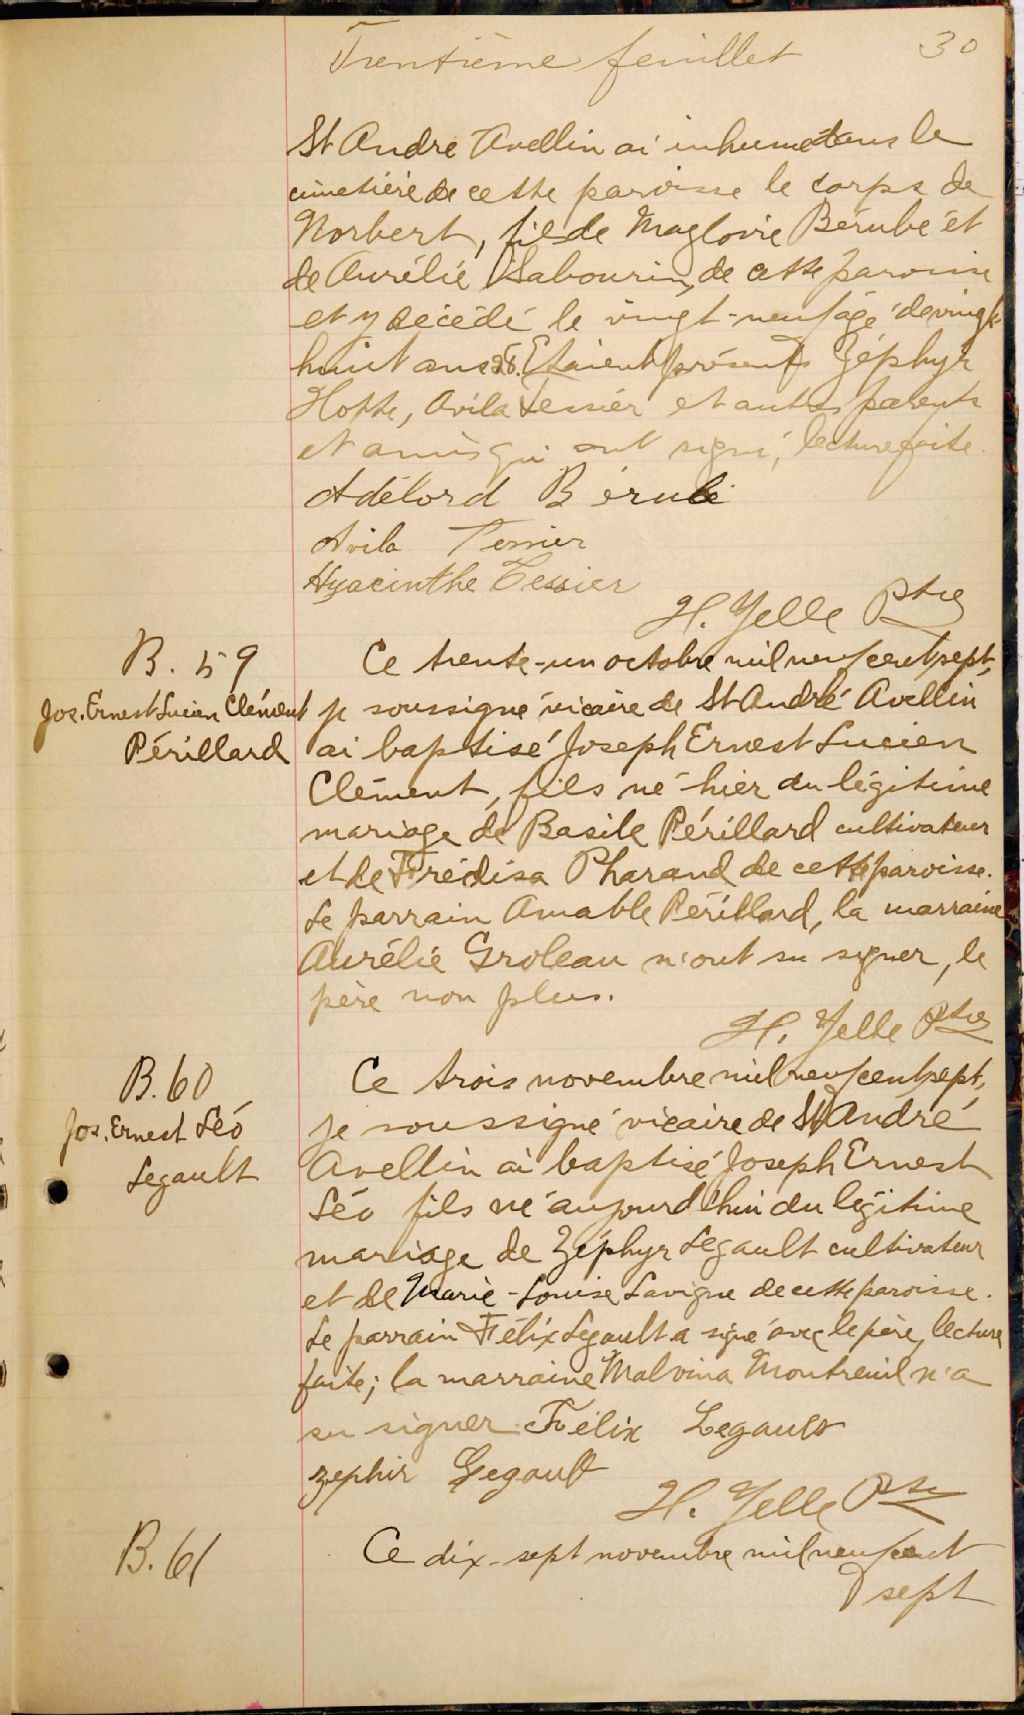 Trentième feuillet 30
St André Avellin ai inhumé dans le
cimetière de cette paroisse le corps de
Norbert, fils de Magloire Bérubé et
de Aurélie Sabourin, de cette paroisse
et y décédé le vingt-neuf âgé de vingt-
huit ans 28. Etaient présents Zéphyr
Hotte, Avila Tessier et autres parents
et amis qui ont signé, lecture faite.
Adélord Bérubé
Avila Tessier
Hyacinthe Tessier
H. Yelle Ptre
B. 59
Jos. Ernest Lucien Clément
Périllard
Ce trente-un octobre mil neuf cent sept,
je soussigné vicaire de St André Avellin
ai baptisé Joseph Ernest Lucien
Clément, fils né hier du légitime
mariage de Basile Périllard cultivateur
et de Frédisa Pharand de cette paroisse.
Le parrain Amable Périllard, la marraine
Aurélie Groleau n'ont su signer, le
père non plus.
H. Yelle Ptre
B. 60
Jos. Ernest Léo
Legault
Ce trois novembre mil neuf cent sept,
je soussigné vicaire de St André
Avellin ai baptisé Joseph Ernest
Léo fils né aujourd'hui du légitime
mariage de Zéphyr Legault cultivateur
et de Marie-Louise Lavigne de cette paroisse.
Le parrain Félix Legault a signé avec le père, lecture
faite; la marraine Malvina Montreuil n'a
su signer. Félix Legault
zephir Legault
H. Yelle Ptre
B. 61
Ce dix-sept novembre mil neuf cent
sept